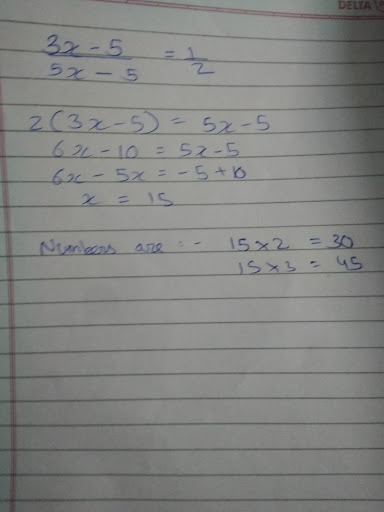 DELTA
3x - 5 / 5x - 5 = 1/2
2(3x-5) = 5x-5
6x-10 = 5x-5
6x - 5x = -5+10
x = 15
Numbers are :- 15×2 = 30
15×3 = 45